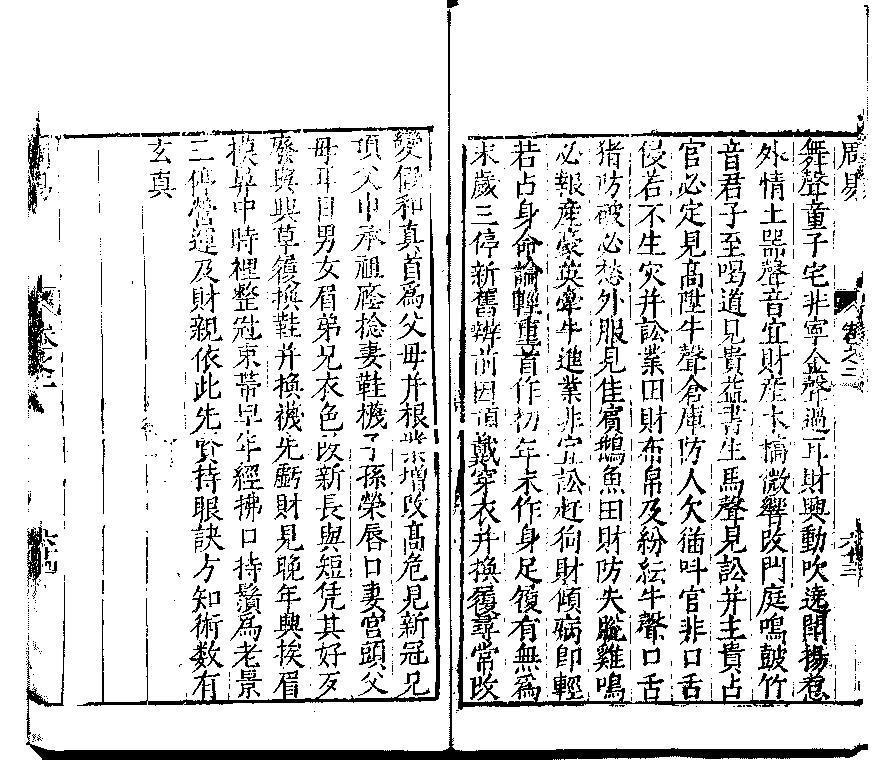 周易 卷之二 六十三
舞聲童子宅非寧金聲過耳財興動吹遶閙揚惹
外情土器聲音宜財產木橋微響改門庭鳴皷竹
音君子至喝道見貴益書生馬聲見訟并主貴占
官必定見高陞牛聲倉庫防人欠猫呌官非口舌
侵若不生灾并訟業田財布帛及紛紜牛聲口舌
猪防破必愁外服見佳賓鵝魚田財防失脫雞鳴
必報産豪英牽牛進業非宜訟赶狗財傾病即輕
若占身命論輕重首作初年末作身足履有無爲
末歲三停新舊辨前因頂戴穿衣并換履尋常改
變假和真首爲父母并根業增改高危見新冠兄
頂父巾承祖廕捻妻鞋機子孫榮唇口妻宮頭父
母耳目男女眉弟兄衣色改新長與短凭其好歹
廢與興草履換鞋并換襪先虧財見晚年興挨眉
模鼻中時裡整冠束帶早年經拂口持鬚爲老景
三停營運及財親依此先賢持眼訣方知術数有
玄真
卷之二 六十四